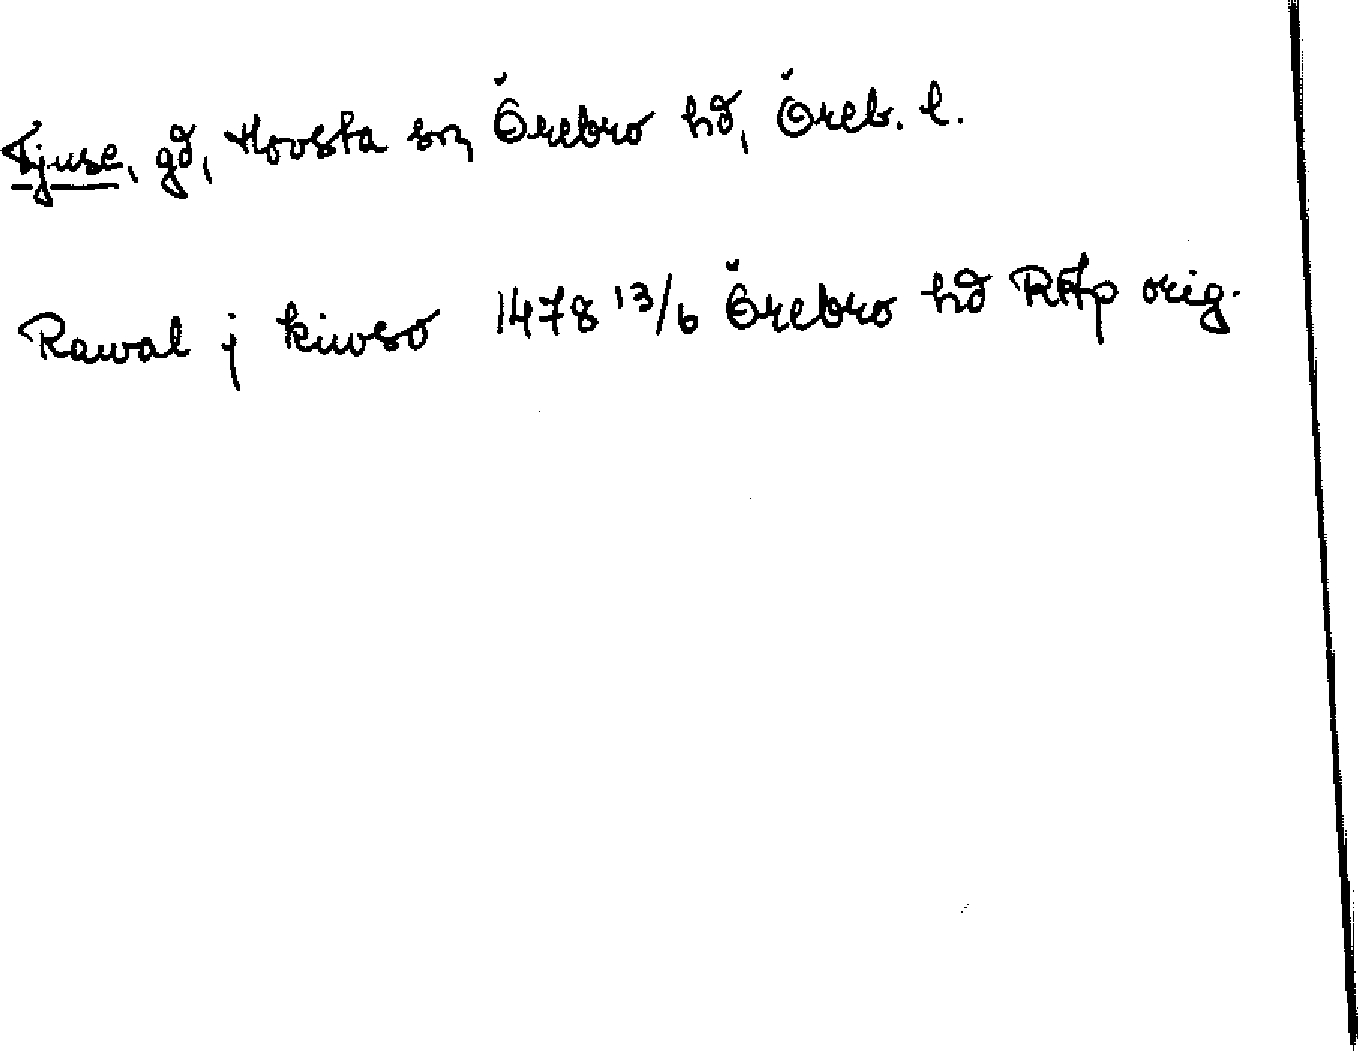 Tjuse, gd, Hovsta sn, Örebro hd, Öreb. l.
Rawal j kiwso 1478 13/6 Örebro hd RAp orig.